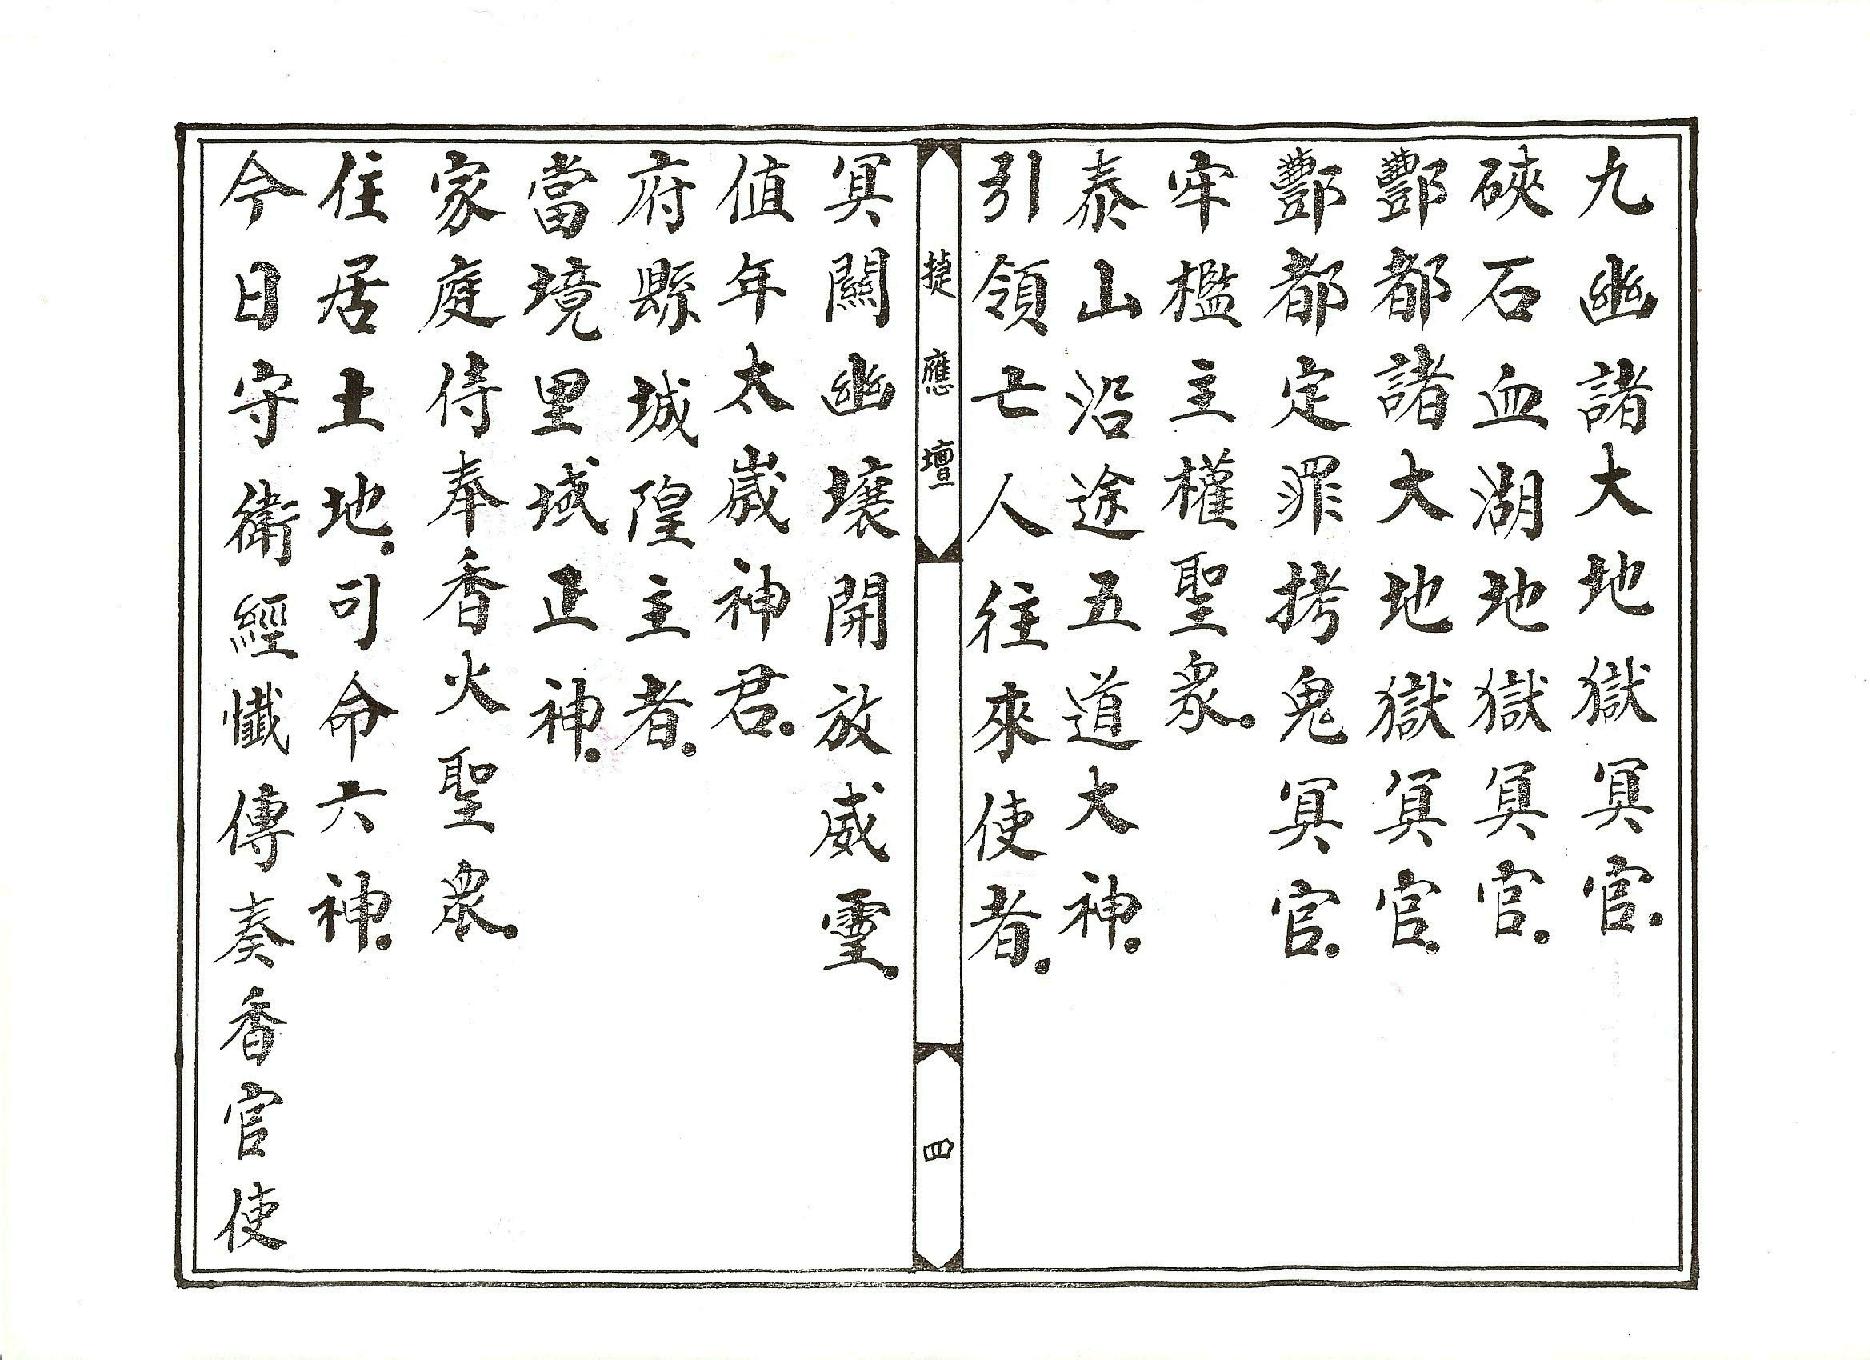 九幽諸大地獄冥官.
硤石血湖地獄冥官.
酆都諸大地獄冥官.
酆都定罪拷鬼冥官.
牢檻主權聖衆.
泰山沿途五道大神.
引領亡人往來使者.
捷應壇
四
冥關幽壤開放威靈.
值年太歲神君.
府縣城隍主者.
當境里域正神.
家庭侍奉香火聖眾.
住居土地.司命六神.
今日守衛經懺傳奏香官使